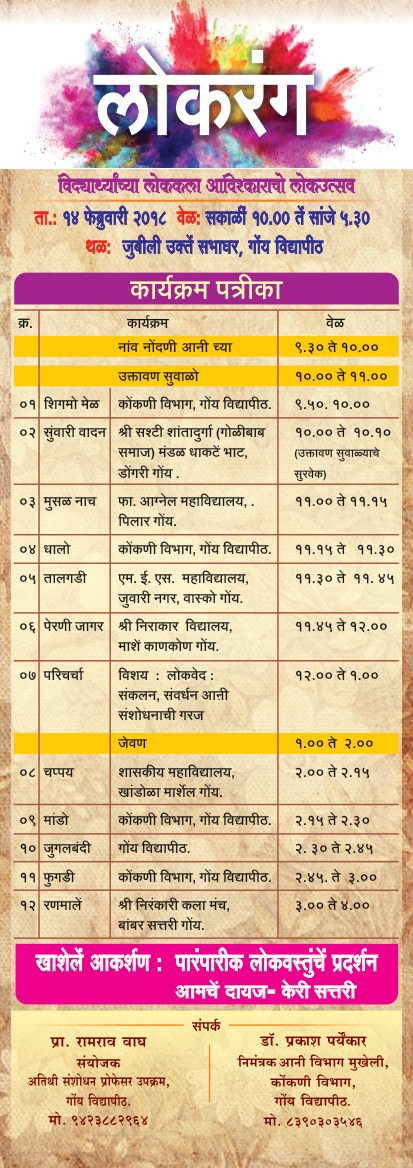 लोकरंग
विद्यार्थ्यांच्या लोककला आविश्काराचो लोकउत्सव
ता.: १४ फेब्रुवारी २०१८ वेळ: सकाळीं १०.०० तें सांजे ५.३०
थळ: जुबीली उक्तें सभाघर, गोंय विद्यापीठ
कार्यक्रम पत्रीका
क्र. कार्यक्रम वेळ
नांव नोंदणी आनी च्या ९.३० ते १०.००
उक्तावण सुवाळो १०.०० ते ११.००
०१ शिगमो मेळ कोंकणी विभाग, गोंय विद्यापीठ. ९.५०. १०.००
०२ सुंवारी वादन श्री सश्टी शांतादुर्गा (गोळीबाब १०.०० ते १०.१०
समाज) मंडळ धाकटें भाट, (उक्तावण सुवाळ्याचे
डोंगरी गोंय . सुरवेक)
०३ मुसळ नाच फा. आग्नेल महाविद्यालय, . ११.०० ते ११.१५
पिलार गोंय.
०४ धालो कोंकणी विभाग, गोंय विद्यापीठ. ११.१५ ते ११.३०
०५ तालगडी एम. ई. एस. महाविद्यालय, ११.३० ते ११. ४५
जुवारी नगर, वास्को गोंय.
०६ पेरणी जागर श्री निराकार विद्यालय, ११.४५ ते १२.००
माशें काणकोण गोंय.
०७ परिचर्चा विशय : लोकवेद : १२.०० ते १.००
संकलन, संवर्धन आनी
संशोधनाची गरज
जेवण १.०० ते २.००
०८ चप्पय शासकीय महाविद्यालय, २.०० ते २.१५
खांडोळा मार्शेल गोंय.
०९ मांडो कोंकणी विभाग, गोंय विद्यापीठ. २.१५ ते २.३०
१० जुगलबंदी गोंय विद्यापीठ. २. ३० ते २.४५
११ फुगडी कोंकणी विभाग, गोंय विद्यापीठ. २.४५. ते ३.००
१२ रणमालें श्री निरंकारी कला मंच, ३.०० ते ४.००
बांबर सत्तरी गोंय.
खाशेलें आकर्शण : पारंपारीक लोकवस्तुंचें प्रदर्शन
आमचें दायज- केरी सत्तरी
संपर्क
प्रा. रामराव वाघ
संयोजक
अतिथी संशोधन प्रोफेसर उपक्रम,
गोंय विद्यापीठ.
मो. ९४२३८८२९६४
डॉ. प्रकाश पर्येंकार
निमंत्रक आनी विभाग मुखेली,
कोंकणी विभाग,
गोंय विद्यापीठ.
मो. ८३९०३०३५४६